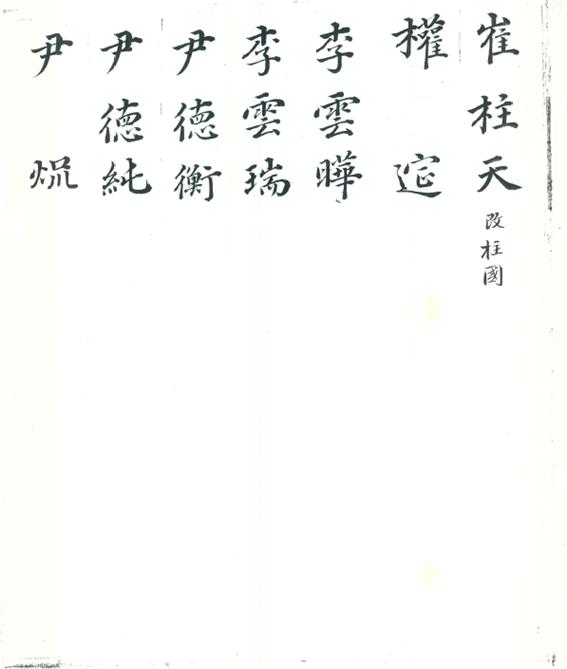 崔柱天 改柱國
權
李雲曄
李雲瑞
尹德衡
尹德純
尹 熀